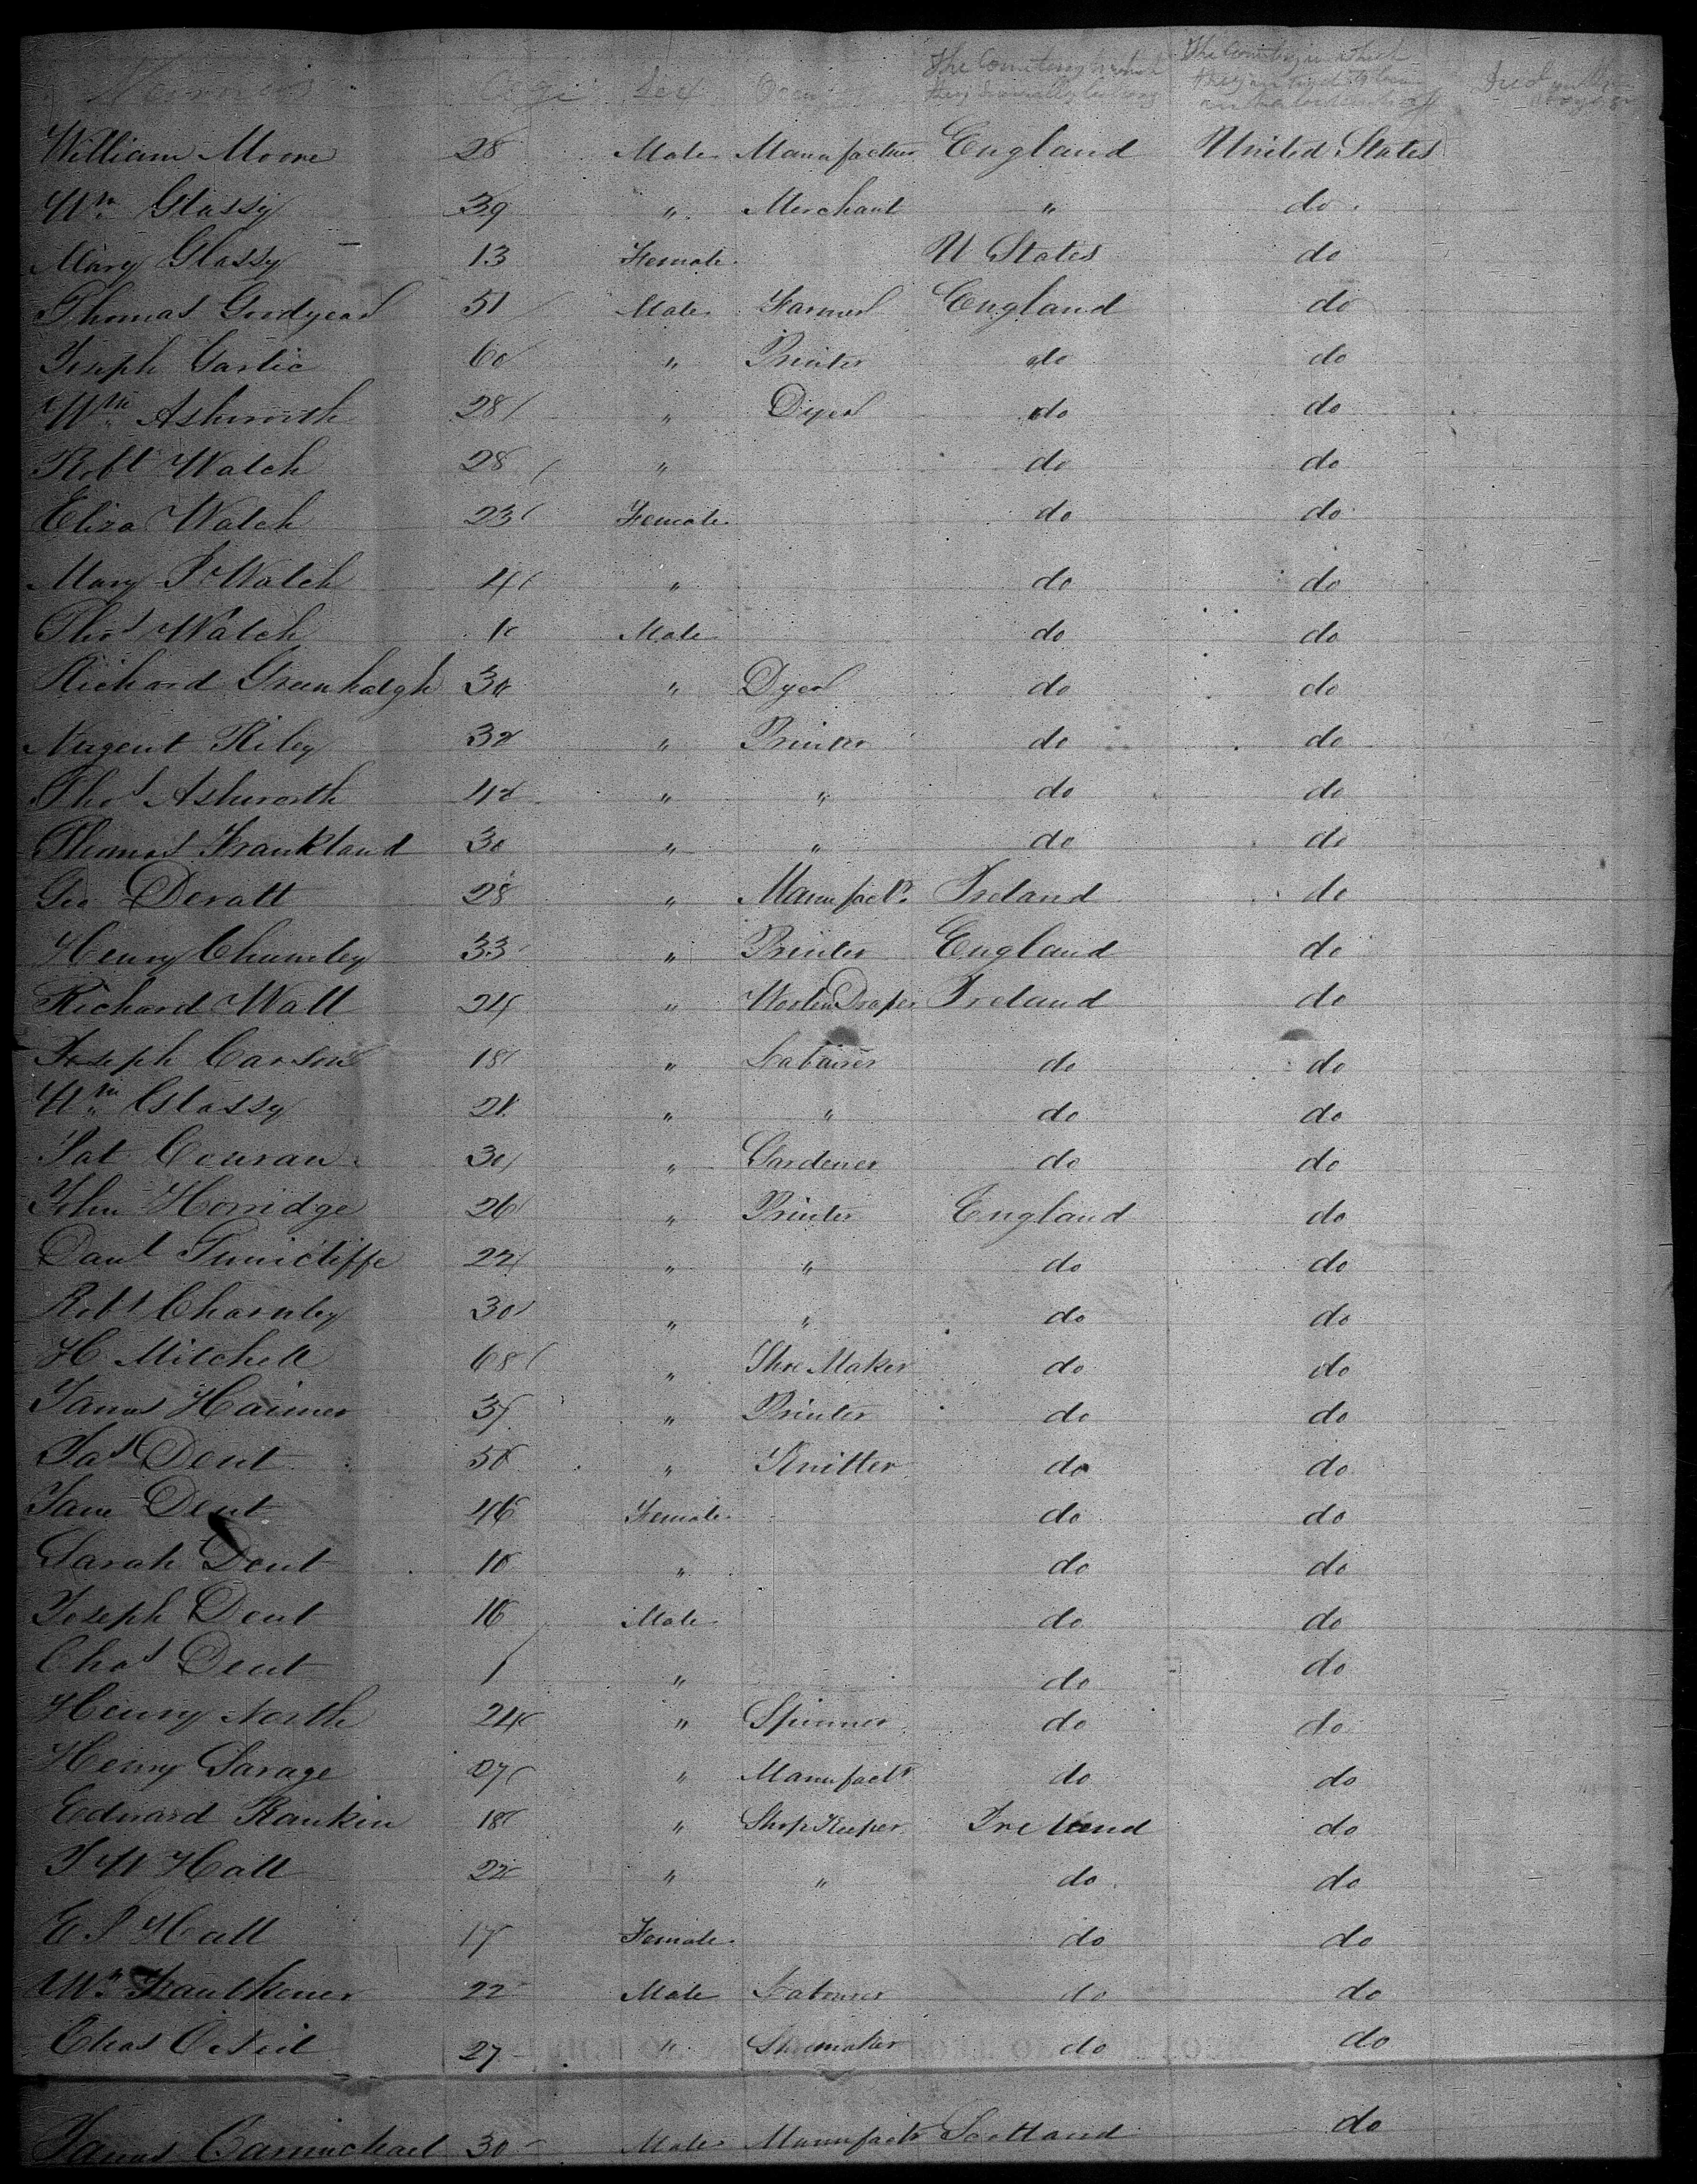 Names Age Sex Occu The Country to which they severally belong The Country in which they intend to become inhabitants of Died on the Voyage
William Moore 28 Male Manufacturer England United States
Wm Glassy 39 " Merchant " do
Mary Glassy 13 Female U States do
Thomas Goodyear 51 Male Farmer England do
Joseph Garlic 60 " Printer do do
Wm Ashworth 28 " Dyer do do
Robt Walch 28 " do do
Eliza Walch 23 Female do do
Mary P Walch 4 " do do
Thos Walch 1 Male do do
Richard Greenhalgh 30 " Dyer do do
Nugent Riley 32 " Printer do do
Thos Ashworth 42 " " do do
Thomas Frankland 30 " " do do
Geo Deratt 28 " Manufactr Ireland do
Henry Chumley 33 " Printer England do
Richard Wall 24 " Woolen Draper Ireland do
Joseph Carson 18 " Labourer do do
Wm Glassy 21 " " do do
Pat Couran 30 " Gardener do do
John Horridge 26 " Printer England do
Danl Tunicliffe 22 " " do do
Robt Charnley 30 " " do do
H Mitchell 68 " Shoe Maker do do
James Haimer 37 " Printer do do
Jas Dent 50 " Knitter do do
Jane Dent 46 Female do do
Sarah Dent 10 " do do
Joseph Dent 16 Male do do
Chas Dent 1 " do do
Henry North 24 " Spinner do do
Henry Savage 27 " Manufactr do do
Edward Rankin 18 " Shop Keeper Ireland do
J W Hall 22 " " do do
E S Hall 17 Female do do
Wm Faulkener 22 Male Labourer do do
Chas O'Neil 27 " Shoemaker do do
James Carmichael 30 Male Manufactr Scotland do